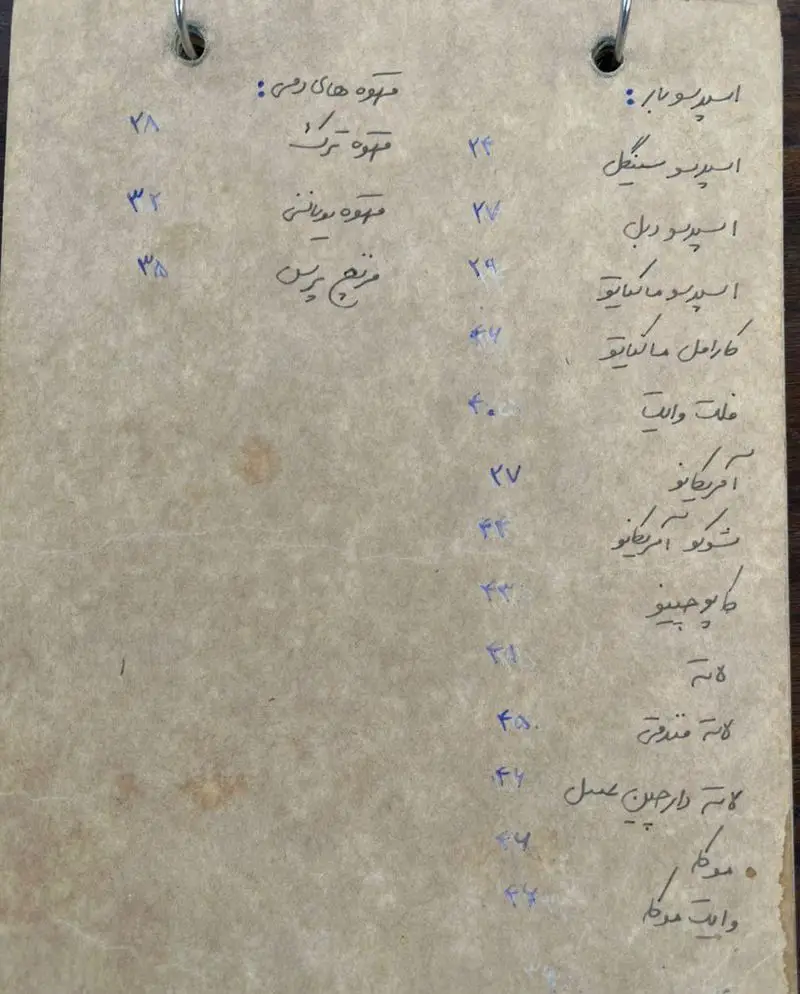 اسپرسو بار :
اسپرسو سینگل ۲۴
اسپرسو دبل ۲۷
اسپرسو ماکیاتو ۲۹
کارامل ماکیاتو
فلت وایت ۴۰
آمریکانو ۲۷
شوکو آمریکانو ۴۴
کاپوچینو ۴۳
لاته ۴۱
لاته فندقی ۴۵
لاته دارچین عسل ۴۶
موکا ۴۶
وایت موکا ۴۶
قهوه های دمی :
قهوه ترک ۲۸
قهوه یونانی ۳۲
فرنچ پرس ۳۵